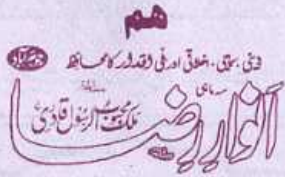 ھم
دینی، سماجی، اخلاقی اور ملی اقدار کا محافظ
سہ ماہی
انوار رضا
ملک محبوب الرسول قادری